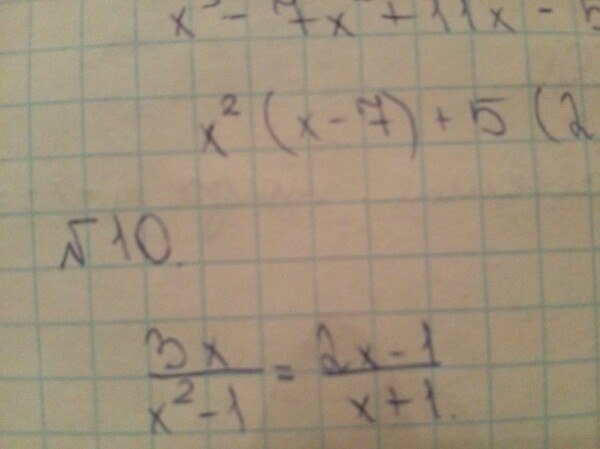 x³ - 7x² + 11x - 5
x² (x - 7) + 5 (2
№ 10.
3x/(x² - 1) = (2x - 1)/(x + 1).